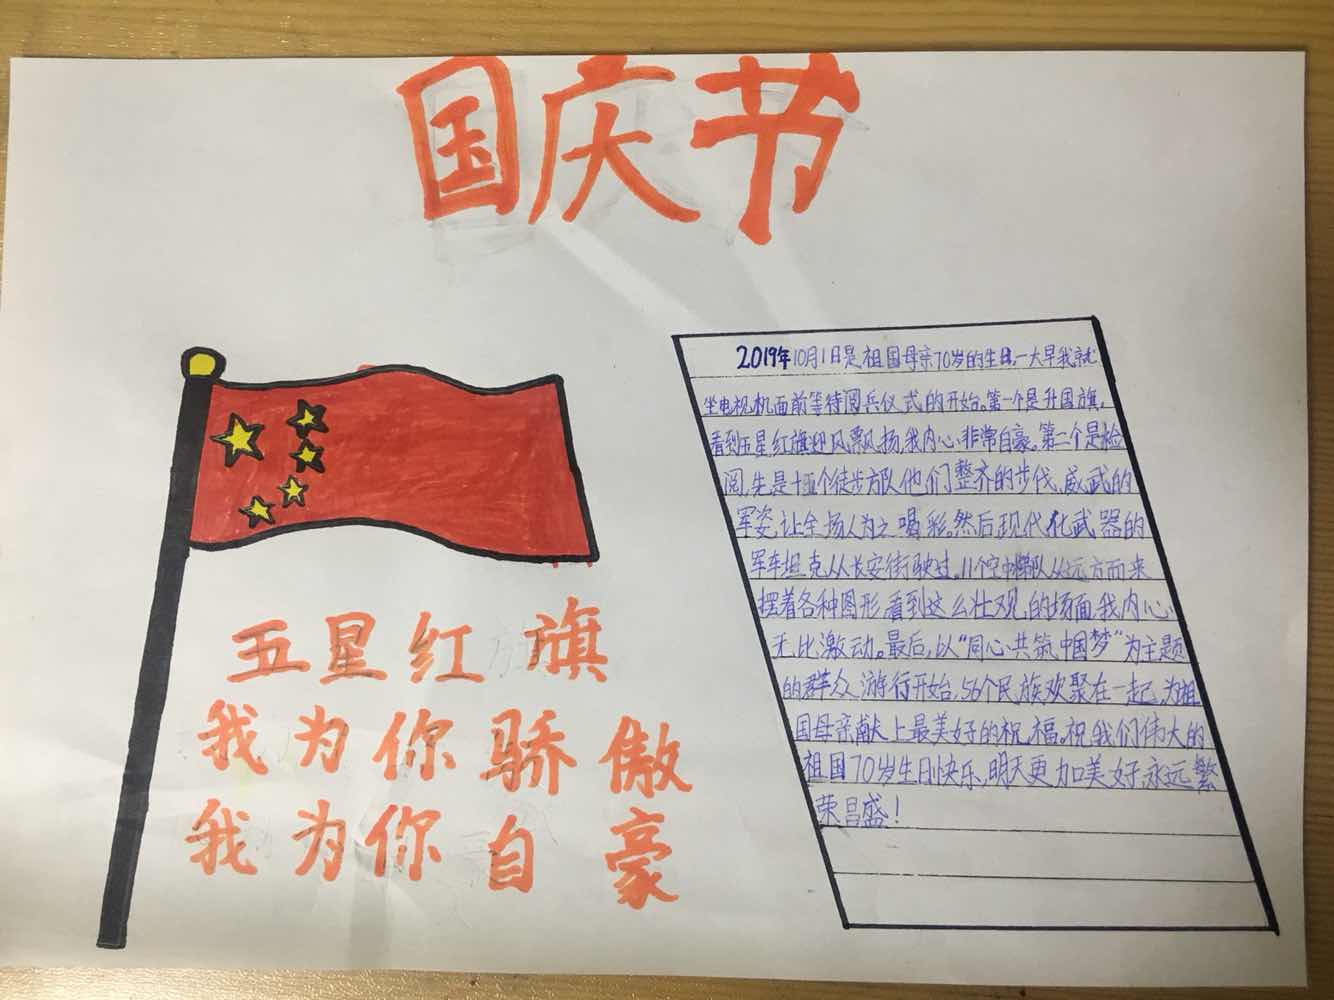 国庆节
五星红旗
我为你骄傲
我为你自豪
2019年10月1日是祖国母亲70岁的生日,一大早我就
坐电视机面前等待阅兵仪式的开始。第一个是升国旗,
看到五星红旗迎风飘扬,我内心非常自豪。第二个是检
阅,先是十五个徒步方队他们整齐的步伐,威武的
军姿,让全场人为之喝彩。然后现代化武器的
军车坦克从长安街驶过。11个空中梯队从远方而来
摆着各种图形,看到这么壮观的场面,我内心
无比激动。最后,以“同心共筑中国梦”为主题
的群众游行开始,56个民族欢聚在一起,为祖
国母亲献上最美好的祝福。祝我们伟大的
祖国70岁生日快乐,明天更加美好,永远繁
荣昌盛!